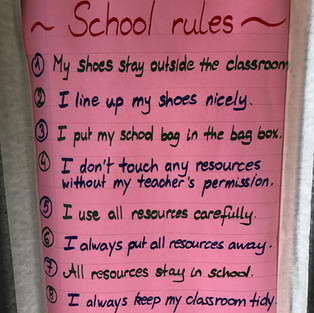 ~ School rules ~
1 My shoes stay outside the classroom
2 I line up my shoes nicely.
3 I put my school bag in the bag box.
4 I don't touch any resources
without my teacher's permission.
5 I use all resources carefully.
6 I always put all resources away.
7 All resources stay in school.
8 I always keep my classroom tidy.